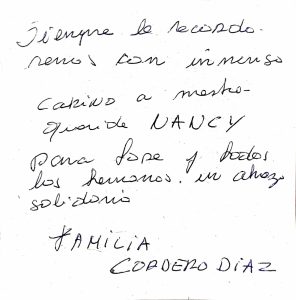 Siempre le recorda-
remos con inmenso
cariño a nuestra
querida NANCY
para Jose y todos
los hermanos. un abrazo
solidario
FAMILIA
CORDERO DIAZ